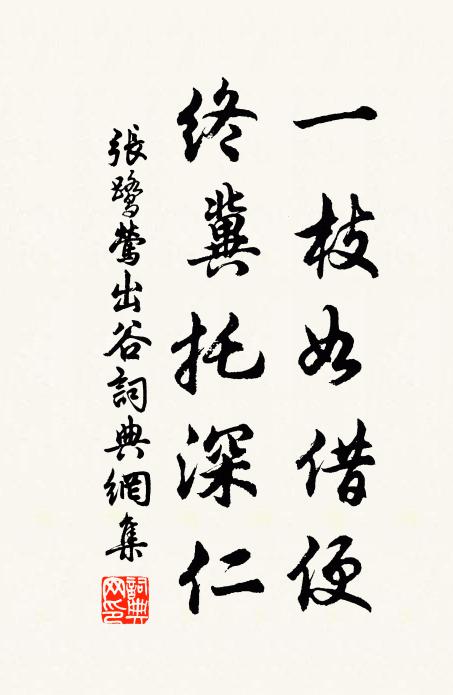 一枝如借便
終冀托深仁
張鷺鶯出谷詞典網集
詞典网印